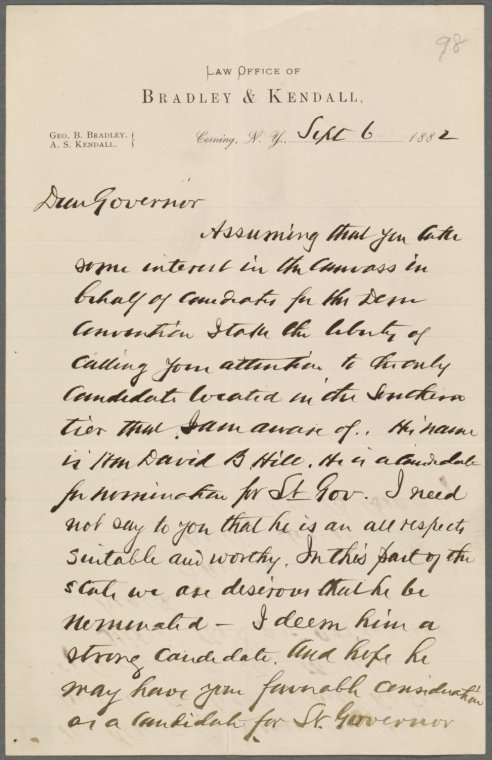 98
LAW OFFICE OF
BRADLEY & KENDALL,
GEO. B. BRADLEY.
A. S. KENDALL.
Corning, N. Y., Sept 6 1882
Dear Governor
Assuming that you take
some interest in the canvass in
behalf of candidates for the Dem
Convention I take the liberty of
calling your attention to the only
candidate located in the Southern
tier that I am aware of. His name
is Hon David B Hill. He is a candidate
for nomination for Lt. Gov. I need
not say to you that he is an all respects
suitable and worthy. In this part of the
state we are desirous that he be
nominated – I deem him a
strong candidate. And hope he
may have your favorable consideration
as a candidate for Lt. Governor